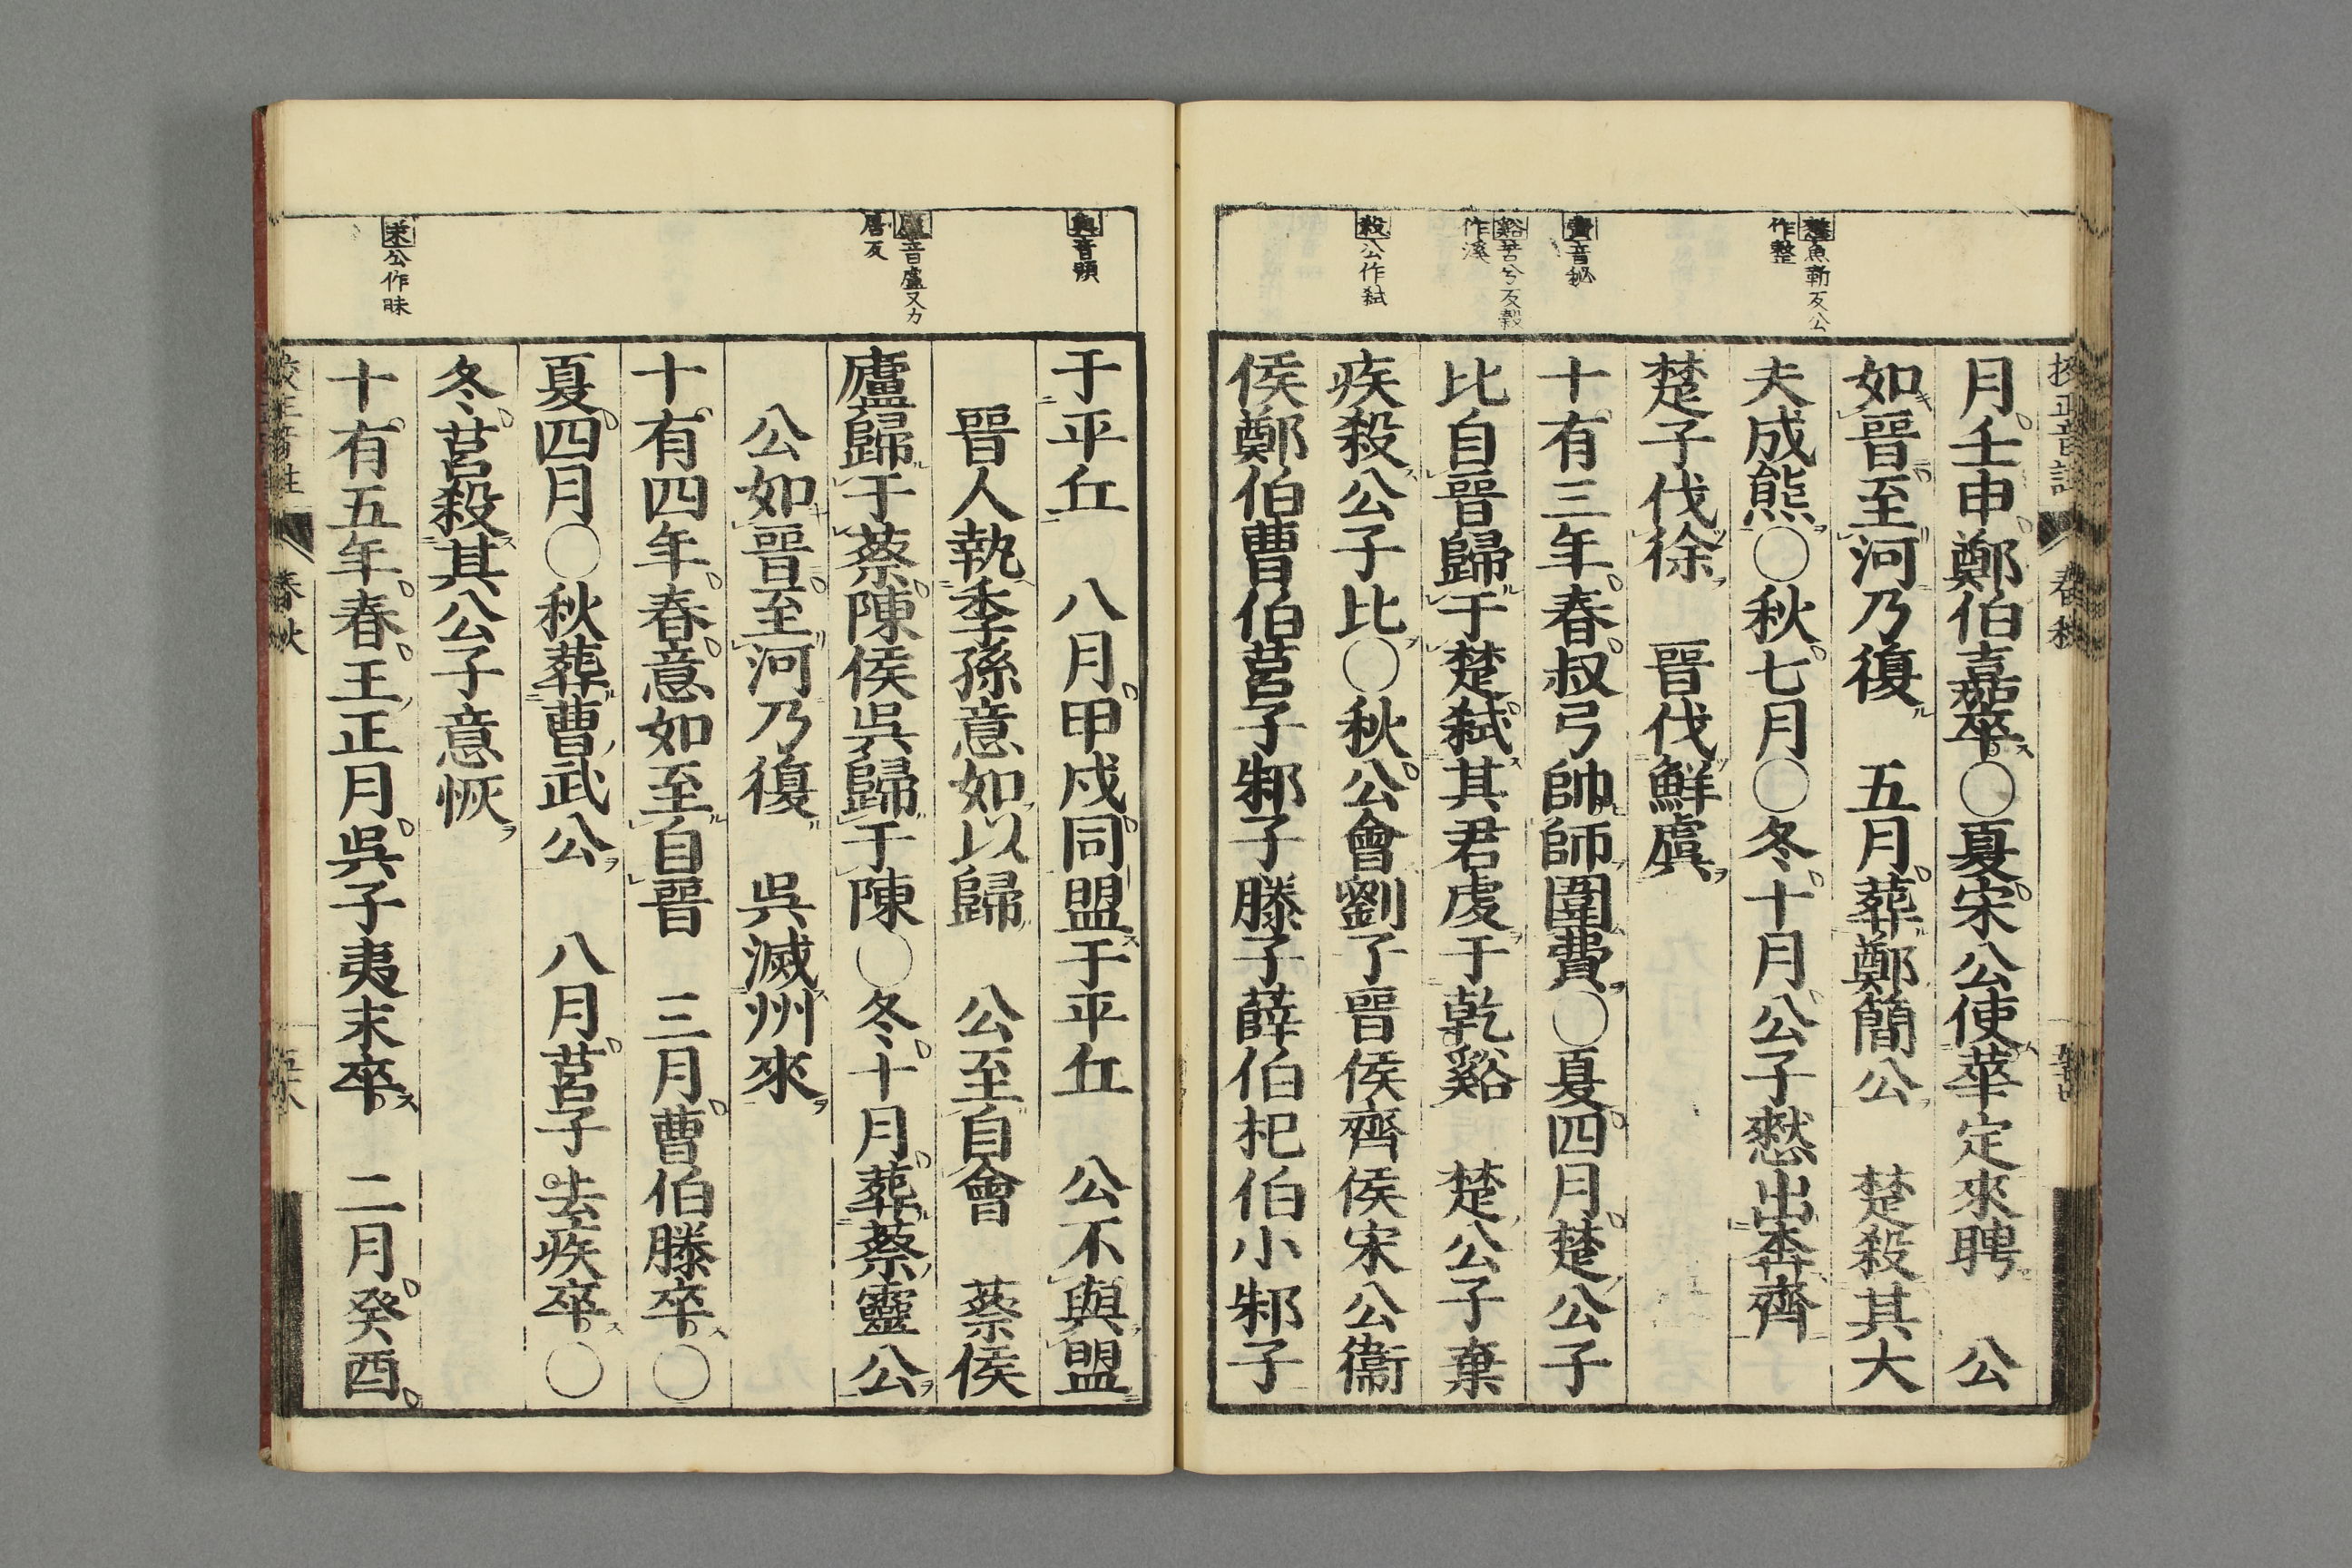 憗魚靳反公
作整
費音秘
谿苦兮反穀
作溪
殺公作弒
月壬申鄭伯嘉卒○夏宋公使華定來聘　公
如晉至河乃復　五月葬鄭簡公　楚殺其大
夫成熊○秋七月○冬十月公子憗出奔齊
楚子伐徐　晉伐鮮虞
十有三年春叔弓帥師圍費○夏四月楚公子
比自晉歸于楚弒其君虔于乾谿　楚公子棄
疾殺公子比○秋公會劉子晉侯齊侯宋公衞
侯鄭伯曹伯莒子邾子滕子薛伯杞伯小邾子
與音預
廬音盧又力
居反
末公作昧
于平丘　八月甲戌同盟于平丘　公不與盟
晉人執季孫意如以歸　公至自會　蔡侯
廬歸于蔡陳侯吳歸于陳○冬十月葬蔡靈公
公如晉至河乃復　吳滅州來
十有四年春意如至自晉　三月曹伯滕卒○
夏四月○秋葬曹武公　八月莒子去疾卒○
冬莒殺其公子意恢
十有五年春王正月吳子夷末卒　二月癸酉
春秋